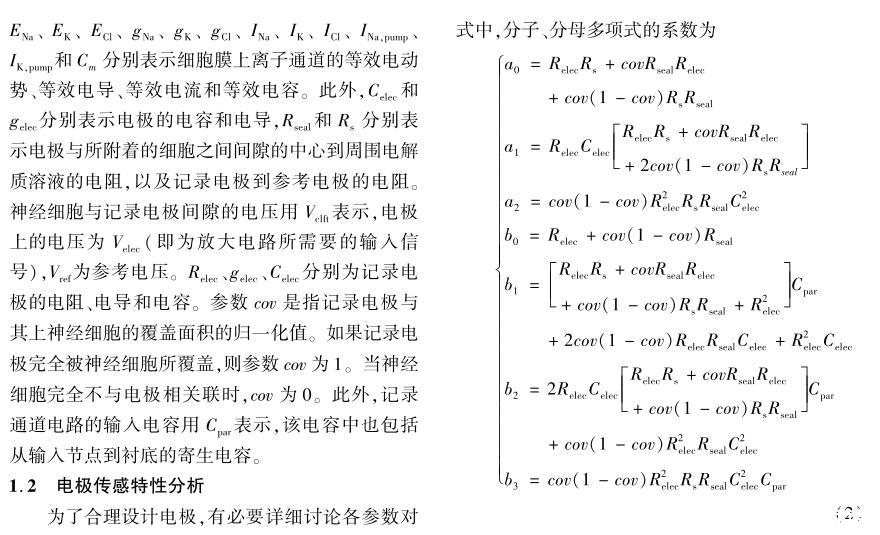 E_Na、E_K、E_Cl、g_Na、g_K、g_Cl、I_Na、I_K、I_Cl、I_Na,pump、
I_K,pump和 C_m 分别表示细胞膜上离子通道的等效电动
势、等效电导、等效电流和等效电容。此外,C_elec和
g_elec分别表示电极的电容和电导,R_seal和 R_s 分别表
示电极与所附着的细胞之间间隙的中心到周围电解
质溶液的电阻,以及记录电极到参考电极的电阻。
神经细胞与记录电极间隙的电压用 V_clft表示,电极
上的电压为 V_elec(即为放大电路所需要的输入信
号),V_ref为参考电压。R_elec、g_elec、C_elec分别为记录电
极的电阻、电导和电容。参数 cov 是指记录电极与
其上神经细胞的覆盖面积的归一化值。如果记录电
极完全被神经细胞所覆盖,则参数 cov 为 1。当神经
细胞完全不与电极相关联时,cov 为 0。此外,记录
通道电路的输入电容用 C_par表示,该电容中也包括
从输入节点到衬底的寄生电容。
1.2 电极传感特性分析
为了合理设计电极,有必要详细讨论各参数对
式中,分子、分母多项式的系数为
a_0 = R_elec R_s + cov R_seal R_elec
+ cov(1 - cov) R_s R_seal
a_1 = R_elec C_elec [ R_elec R_s + cov R_seal R_elec
+ 2cov(1 - cov) R_s R_seal ]
a_2 = cov(1 - cov) R²_elec R_s R_seal C²_elec
b_0 = R_elec + cov(1 - cov) R_seal
b_1 = [ R_elec R_s + cov R_seal R_elec
+ cov(1 - cov) R_s R_seal + R²_elec ] C_par
+ 2cov(1 - cov) R_elec R_seal C_elec + R²_elec C_elec
b_2 = 2R_elec C_elec [ R_elec R_s + cov R_seal R_elec
+ cov(1 - cov) R_s R_seal ] C_par
+ cov(1 - cov) R²_elec R_seal C²_elec
b_3 = cov(1 - cov) R²_elec R_s R_seal C²_elec C_par
(2)